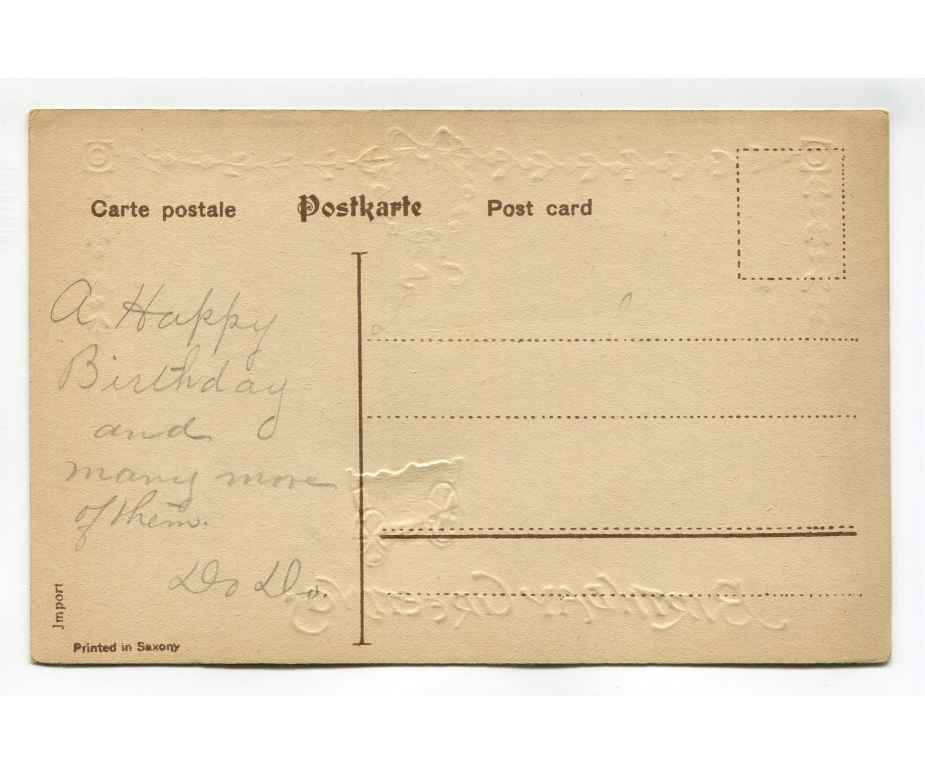 Carte postale Postkarte Post card
A Happy
Birthday
and
many more
of them.
Do Do.
Import
Printed in Saxony
BIRTHDAY GREETINGS